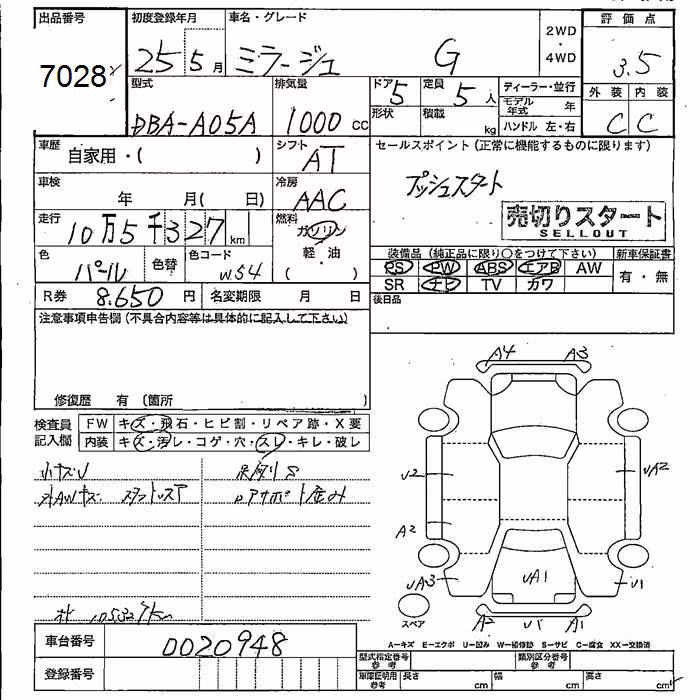 出品番号 初度登録年月 車名・グレード 2WD ・ 4WD 評価点
7028 25 5月 ミラージュ G 3.5
型式 排気量 ドア 5 定員 5人 ディーラー・並行 外装 内装
DBA-A05A 1000 cc 形状 積載 kg モデル年式 年 C C
ハンドル 左・右
車歴 自家用・( ) シフト AT セールスポイント (正常に機能するものに限ります)
車検 年 月( 日) 冷房 AAC プッシュスタート
走行 10万5千327km 燃料 ガソリン 売切りスタート
軽・油 ( ) SELLOUT
色 パール 色替 色コード W54 装備品 (純正品に限り○をつけて下さい) 新車保証書
PS PW ABS エアB AW 有・無
R券 8.650円 名変期限 月 日 SR ナビ TV カワ
注意事項申告欄 (不具合内容等は具体的に記入して下さい) 後日品
修復歴 有 (箇所 )
A4 A3
検査員 FW キズ・飛石・ヒビ割・リペア跡・X要
記入欄 内装 キズ・汚レ・コゲ・穴・スレ・キレ・破レ
小キズU
U2 UA2
A2
UA3 UA1 U1
スペア A2 U1 A1
105327km
A=キズ E=エクボ U=凹み W=補修跡 S=サビ C=腐食 XX=交換済
車台番号 0020948 型式指定番号 参考 類別区分番号 参考
登録番号 車庫証明用 参考 長さ cm 幅 cm 高さ cm